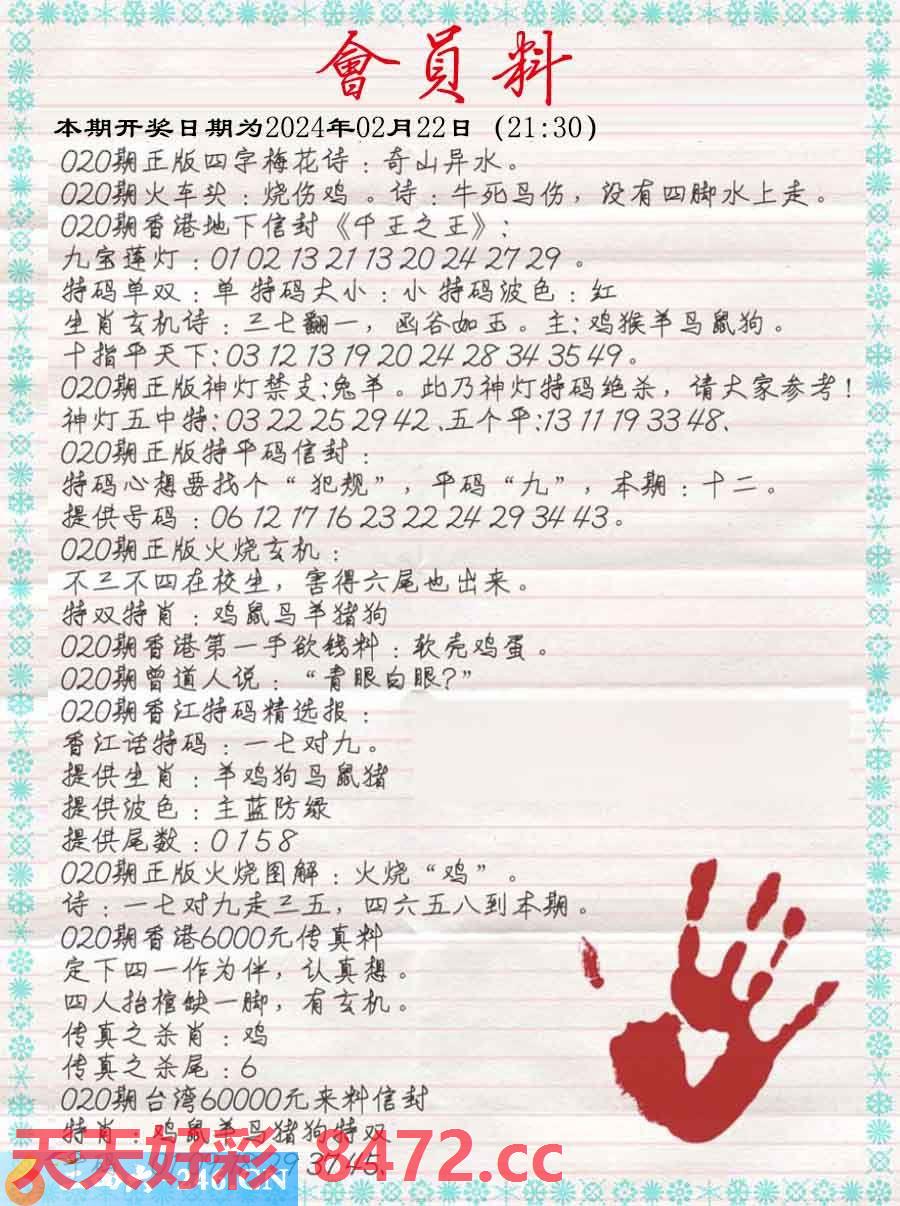 會員料
本期开奖日期为2024年02月22日（21:30）
020期正版四字梅花诗：奇山异水。
020期火车头：烧伤鸡 。诗：牛死鸟伤，没有四脚水上走。
020期香港地下信封《千王之王》:
九宝莲灯：01 02 13 21 13 20 24 27 29 。
特码单双：单 特码大小：小 特码波色：红
生肖玄机诗：三七翻一，函谷如玉。主: 鸡猴羊马鼠狗。
十指平天下: 03 12 13 19 20 24 28 34 35 49。
020期正版神灯禁支:兔羊。此乃神灯特码绝杀，请大家参考！
神灯五中特: 03 22 25 29 42 .五个平:13 11 19 33 48.
020期正版特平码信封：
特码心想要找个“犯规”，平码“九”，本期：十二。
提供号码：06 12 17 16 23 22 24 29 34 43。
020期正版火烧玄机：
不三不四在校生，害得六尾也出来。
特双特肖：鸡鼠马羊猪狗
020期香港第一手欲钱料：软壳鸡蛋。
020期曾道人说：“青眼白眼?”
020期香江特码精选报：
香江话特码：一七对九。
提供生肖：羊鸡狗马鼠猪
提供波色：主蓝防绿
提供尾数：0 1 5 8
020期正版火烧图解：火烧“鸡”。
诗：一七对九走三五，四六五八到本期。
020期香港6000元传真料
定下四一作为伴，认真想。
四人抬棺缺一脚，有玄机。
传真之杀肖：鸡
传真之杀尾：6
020期台湾60000元来料信封
特肖：鸡鼠羊马猪狗特双
天天好彩 8472.cc
246.CN